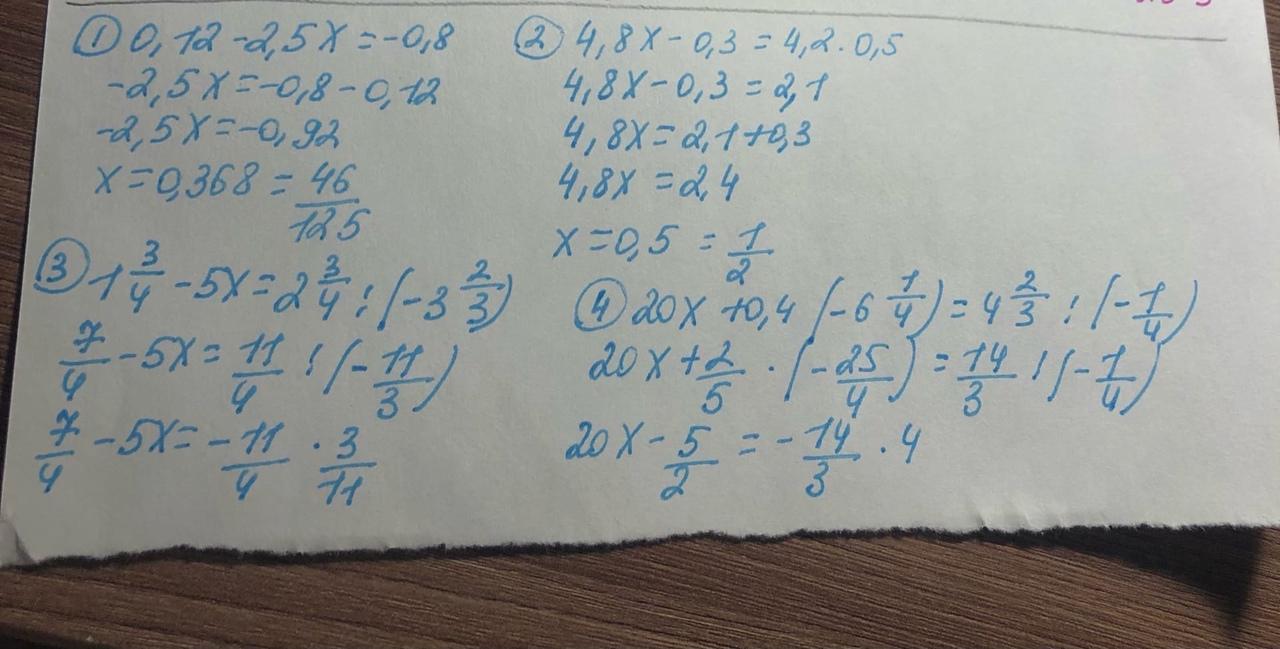 ① 0,12 - 2,5x = -0,8
-2,5x = -0,8 - 0,12
-2,5x = -0,92
x = 0,368 = 46/125
② 4,8x - 0,3 = 4,2 · 0,5
4,8x - 0,3 = 2,1
4,8x = 2,1 + 0,3
4,8x = 2,4
x = 0,5 = 1/2
③ 1 3/4 - 5x = 2 3/4 : (-3 2/3)
7/4 - 5x = 11/4 : (-11/3)
7/4 - 5x = -11/4 · 3/11
④ 20x + 0,4 (-6 1/4) = 4 2/3 : (-1/4)
20x + 2/5 · (-25/4) = 14/3 : (-1/4)
20x - 5/2 = -14/3 · 4